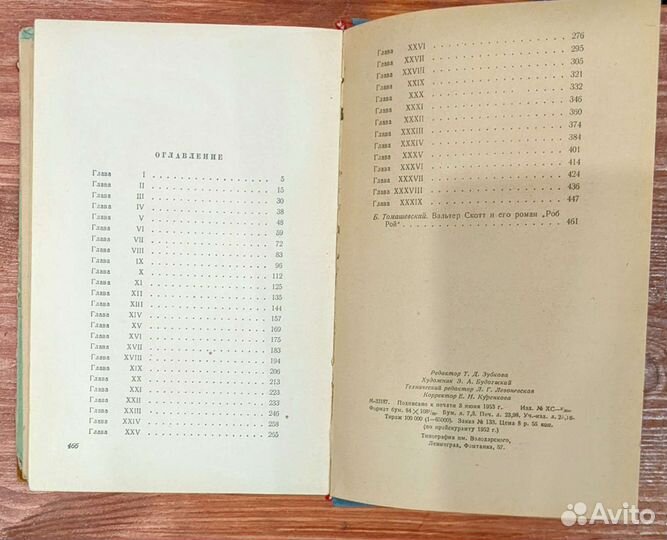 ОГЛАВЛЕНИЕ
Глава I 5
Глава II 15
Глава III 30
Глава IV 38
Глава V 48
Глава VI 59
Глава VII 72
Глава VIII 83
Глава IX 96
Глава X 112
Глава XI 125
Глава XII 135
Глава XIII 144
Глава XIV 157
Глава XV 169
Глава XVI 175
Глава XVII 183
Глава XVIII 194
Глава XIX 206
Глава XX 213
Глава XXI 223
Глава XXII 233
Глава XXIII 246
Глава XXIV 258
Глава XXV 265
466
Глава XXVI 276
Глава XXVII 295
Глава XXVIII 305
Глава XXIX 321
Глава XXX 332
Глава XXXI 346
Глава XXXII 360
Глава XXXIII 374
Глава XXXIV 384
Глава XXXV 401
Глава XXXVI 414
Глава XXXVII 424
Глава XXXVIII 436
Глава XXXIX 447
Б. Томашевский. Вальтер Скотт и его роман „Роб
Рой“ 461
Редактор Т. Д. Зубкова
Художник Э. А. Будогоский
Технический редактор Л. Г. Левоневская
Корректор Е. Н. Куренкова
М-32197. Подписано к печати 3 июня 1953 г. Изд. № ХС—
Формат бум. 84 × Бум. л. 7,3. Печ. л. 23,98. Уч.-изд. л.
Тираж 100 000 (1—65000). Заказ № 133. Цена 8 р. 55 коп.
(по прейскуранту 1952 г.)
Типография им. Володарского,
Ленинград, Фонтанка, 57.
Avito